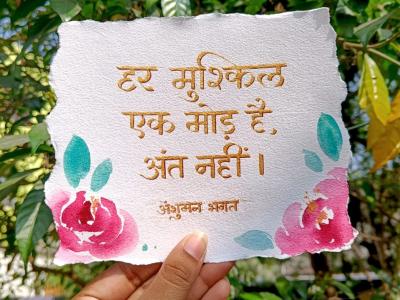 हर मुश्किल
एक मोड़ है,
अंत नहीं ।
अंशुमन भगत